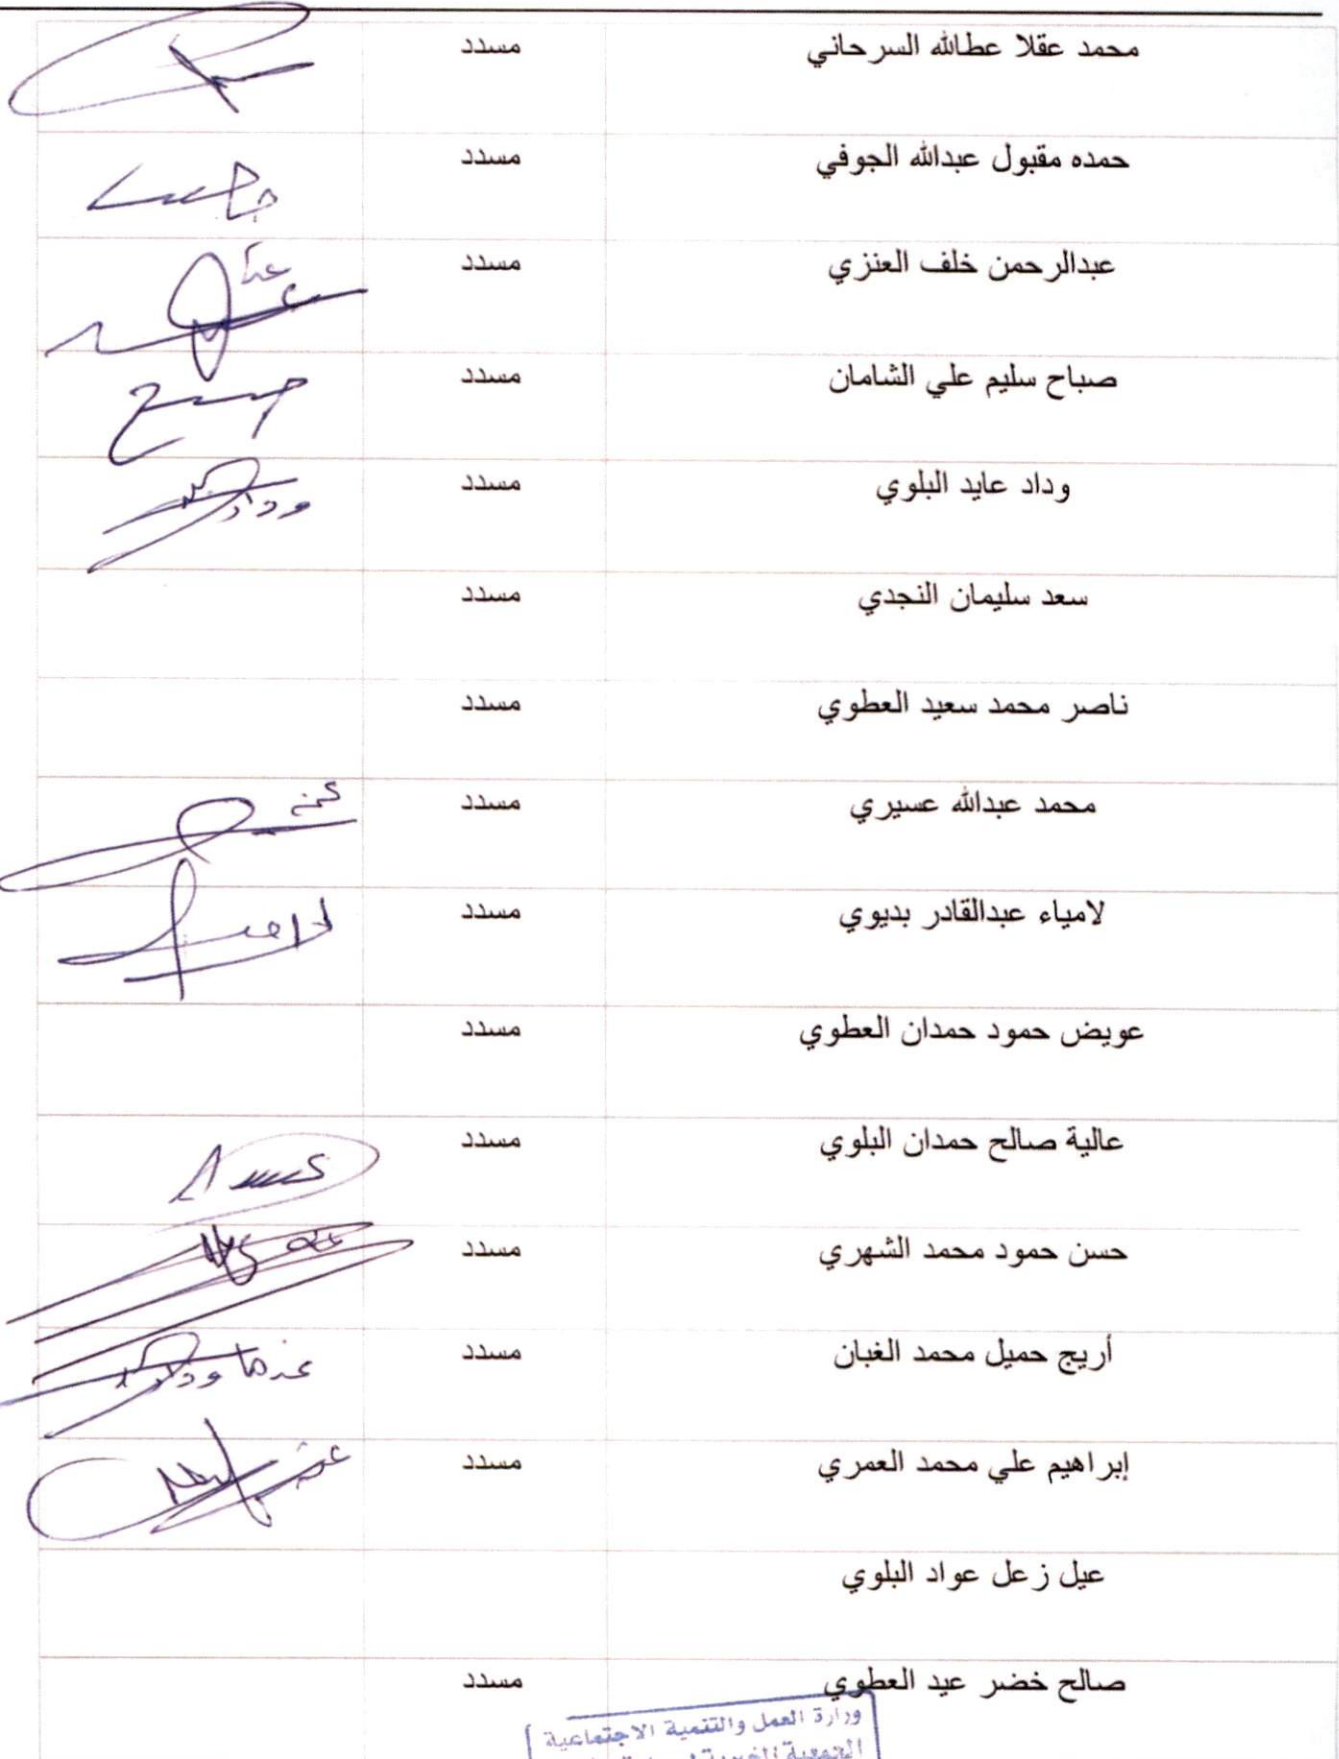 محمد عقلا عطالله السرحاني مسدد
حمده مقبول عبدالله الجوفي مسدد
عبدالرحمن خلف العنزي مسدد
صباح سليم علي الشامان مسدد
وداد عايد البلوي مسدد وداد
سعد سليمان النجدي مسدد
ناصر محمد سعيد العطوي مسدد
محمد عبدالله عسيري مسدد
لامياء عبدالقادر بديوي مسدد
عويض حمود حمدان العطوي مسدد
عالية صالح حمدان البلوي مسدد
حسن حمود محمد الشهري مسدد
أريج حميل محمد الغبان مسدد عنها وداد
إبراهيم علي محمد العمري مسدد
عيل زعل عواد البلوي
صالح خضر عيد العطوي مسدد
وزارة العمل والتنمية الاجتماعية
الجمعية الخيرية